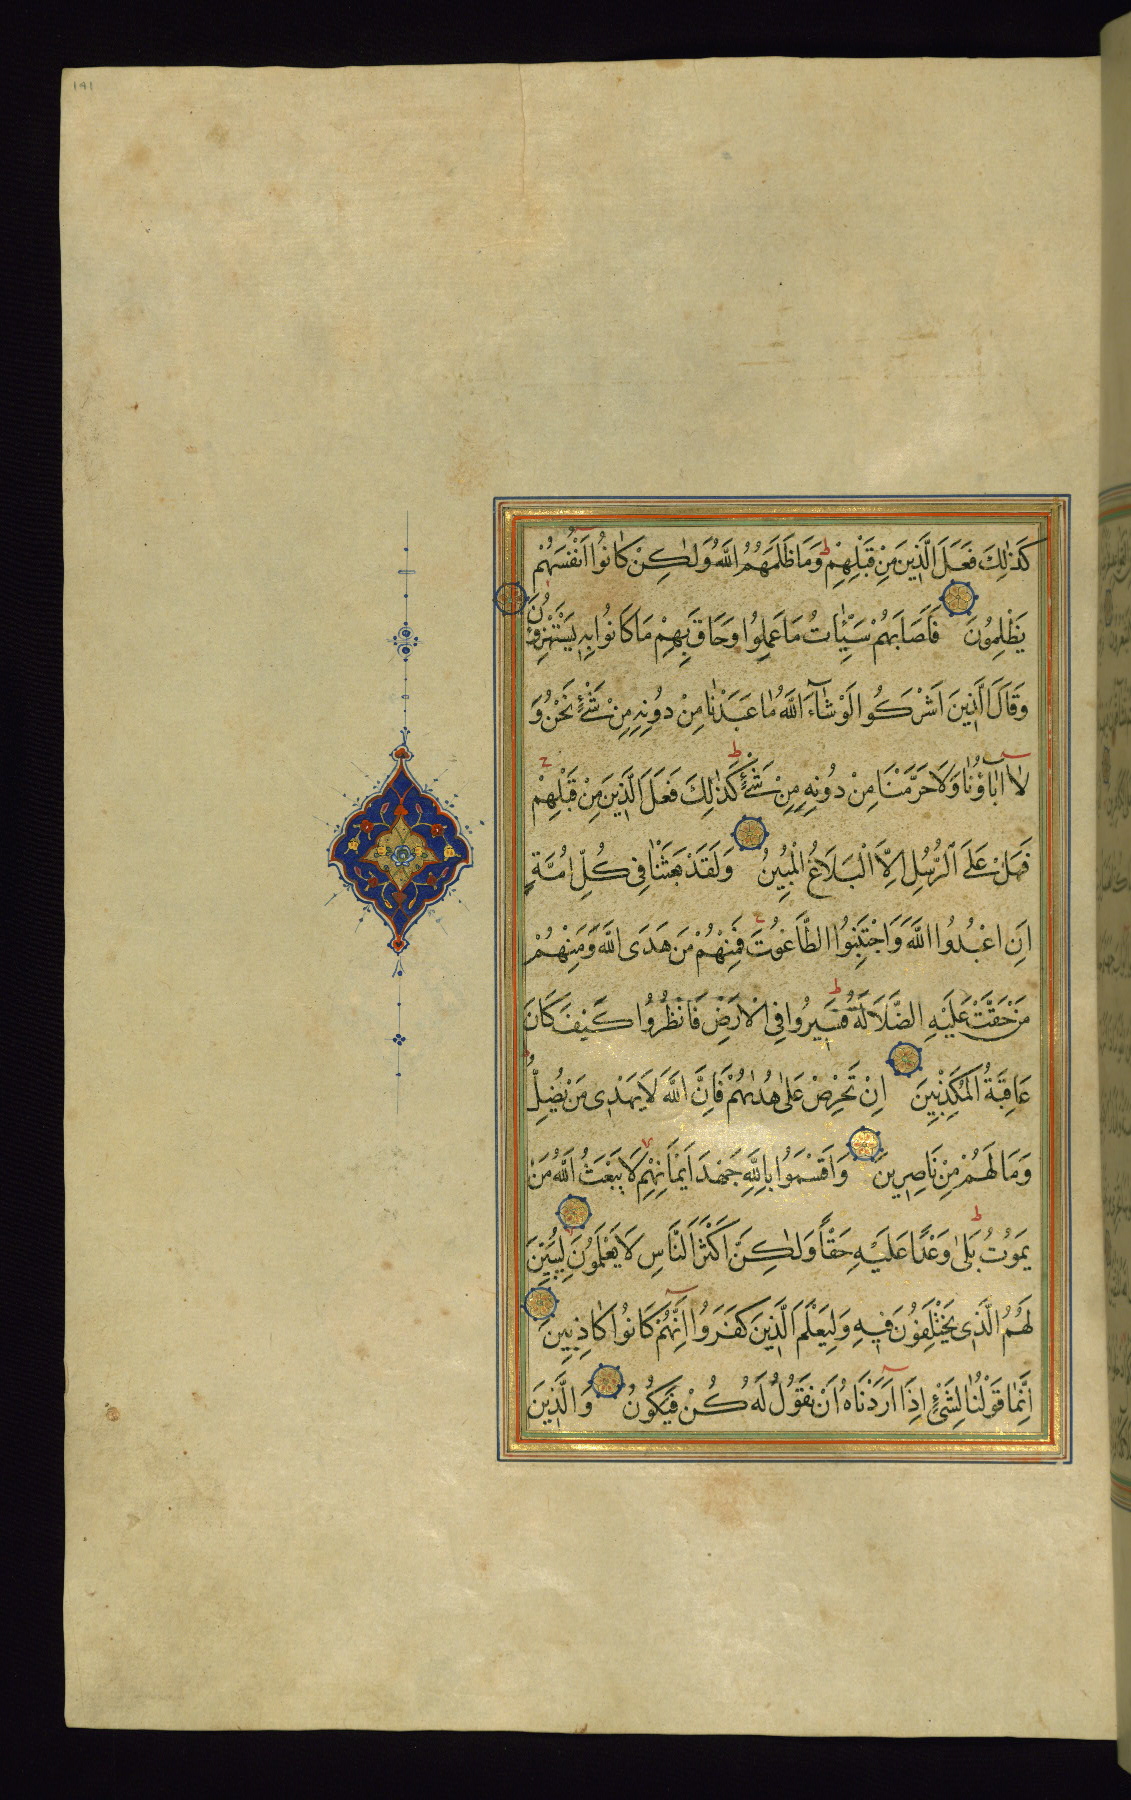 ١٩١
كَذٰلِكَ فَعَلَ الَّذِينَ مِنْ قَبْلِهِمْ وَمَا ظَلَمَهُمُ اللّٰهُ وَلٰكِنْ كَانُوا اَنْفُسَهُمْ
يَظْلِمُونَ فَاَصَابَهُمْ سَيِّئَاتُ مَا عَمِلُوا وَحَاقَ بِهِمْ مَا كَانُوا بِهِ يَسْتَهْزِؤُنَ
وَقَالَ الَّذِينَ اَشْرَكُوا لَوْ شَآءَ اللّٰهُ مَا عَبَدْنَا مِنْ دُونِهِ مِنْ شَىْءٍ نَحْنُ وَ
لَا اٰبَاؤُنَا وَلَا حَرَّمْنَا مِنْ دُونِهِ مِنْ شَىْءٍ كَذٰلِكَ فَعَلَ الَّذِينَ مِنْ قَبْلِهِمْ
فَهَلْ عَلَى الرُّسُلِ اِلَّا الْبَلَاغُ الْمُبِينُ وَلَقَدْ بَعَثْنَا فِى كُلِّ اُمَّةٍ
اَنِ اعْبُدُوا اللّٰهَ وَاجْتَنِبُوا الطَّاغُوتَ فَمِنْهُمْ مَنْ هَدَى اللّٰهُ وَمِنْهُمْ
مَنْ حَقَّتْ عَلَيْهِ الضَّلَالَةُ فَسِيرُوا فِى الْاَرْضِ فَانْظُرُوا كَيْفَ كَانَ
عَاقِبَةُ الْمُكَذِّبِينَ اِنْ تَحْرِصْ عَلٰى هُدٰيهُمْ فَاِنَّ اللّٰهَ لَا يَهْدِى مَنْ يُضِلُّ
وَمَا لَهُمْ مِنْ نَاصِرِينَ وَاَقْسَمُوا بِاللّٰهِ جَهْدَ اَيْمَانِهِمْ لَا يَبْعَثُ اللّٰهُ مَنْ
يَمُوتُ بَلٰى وَعْدًا عَلَيْهِ حَقًّا وَلٰكِنَّ اَكْثَرَ النَّاسِ لَا يَعْلَمُونَ لِيُبَيِّنَ
لَهُمُ الَّذِى يَخْتَلِفُونَ فِيهِ وَلِيَعْلَمَ الَّذِينَ كَفَرُوا اَنَّهُمْ كَانُوا كَاذِبِينَ
اِنَّمَا قَوْلُنَا لِشَىْءٍ اِذَا اَرَدْنَاهُ اَنْ نَقُولَ لَهُ كُنْ فَيَكُونُ وَالَّذِينَ